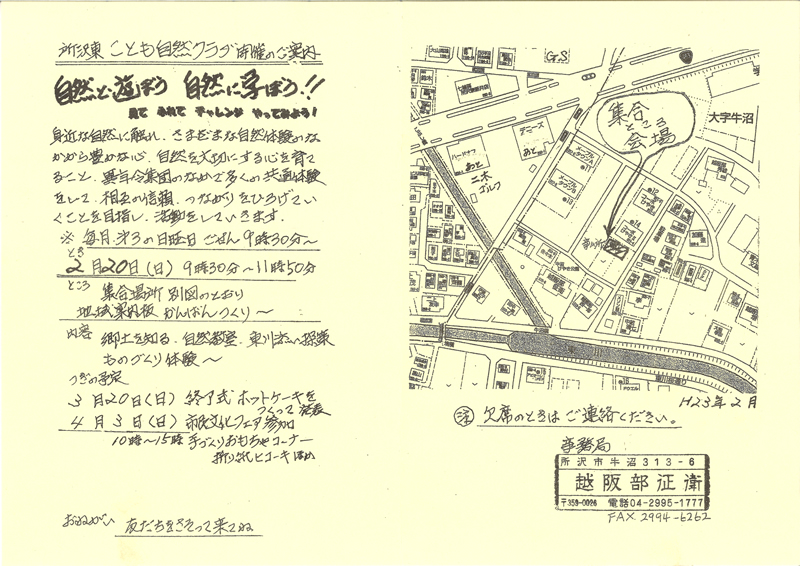 所沢東 こども自然クラブ 開催のご案内
自然と遊ぼう 自然に学ぼう!!
見て ふれて チャレンジ やってみよう!
身近な自然に触れ、さまざまな自然体験のな
かから豊かな心、自然を大切にする心を育て
ること、異年令集団のなかで多くの共通体験
をして、相互の信頼、つながりをひろげてい
くことを目指し、活動をしていきます。
※ 毎月、第3の日曜日 ごぜん9時30分〜
とき
2月20日(日) 9時30分〜11時50分
ところ 集合場所 別図のとおり
地域案内板 かんばんづくり〜
内容 郷土を知る、自然教室、東川沿い探索
ものづくり体験〜
つぎの予定
3月20日(日) 終了式 ホットケーキを
つくって 発表
4月3日(日) 市民文化フェア参加
10時〜15時 手づくりおもちゃコーナー
折り紙ヒコーキ ほか
おねがい 友だちをさそって来てね
G.S
集合
ところ
会場
大字牛沼
デニーズ
あと
あと
二木
ゴルフ
H23年2月
注 欠席のときは ご連絡ください。
事務局
所沢市牛沼313-6
越阪部征衛
〒359-0026 電話04-2995-1777
FAX 2994-6262